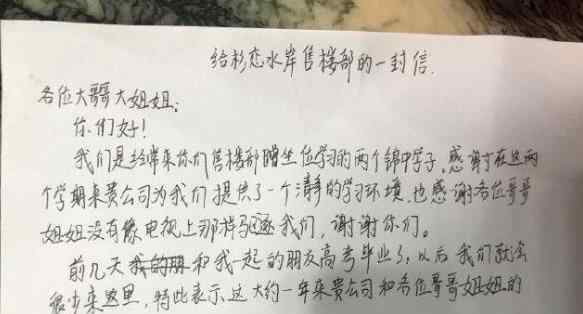 给杉恋水岸售楼部的一封信.
各位大哥大姐姐:
你们好!
我们是经常来你们售楼部蹭坐位学习的两个锦中学子,感谢在这两
个学期来贵公司为我们提供了一个清静的学习环境,也感谢各位哥哥
姐姐没有像电视上那样驱逐我们,谢谢你们。
前几天我的朋和我一起的朋友高考毕业了,以后我们就会
很少来这里,特此表示,这大约一年来贵公司和各位哥哥姐姐的